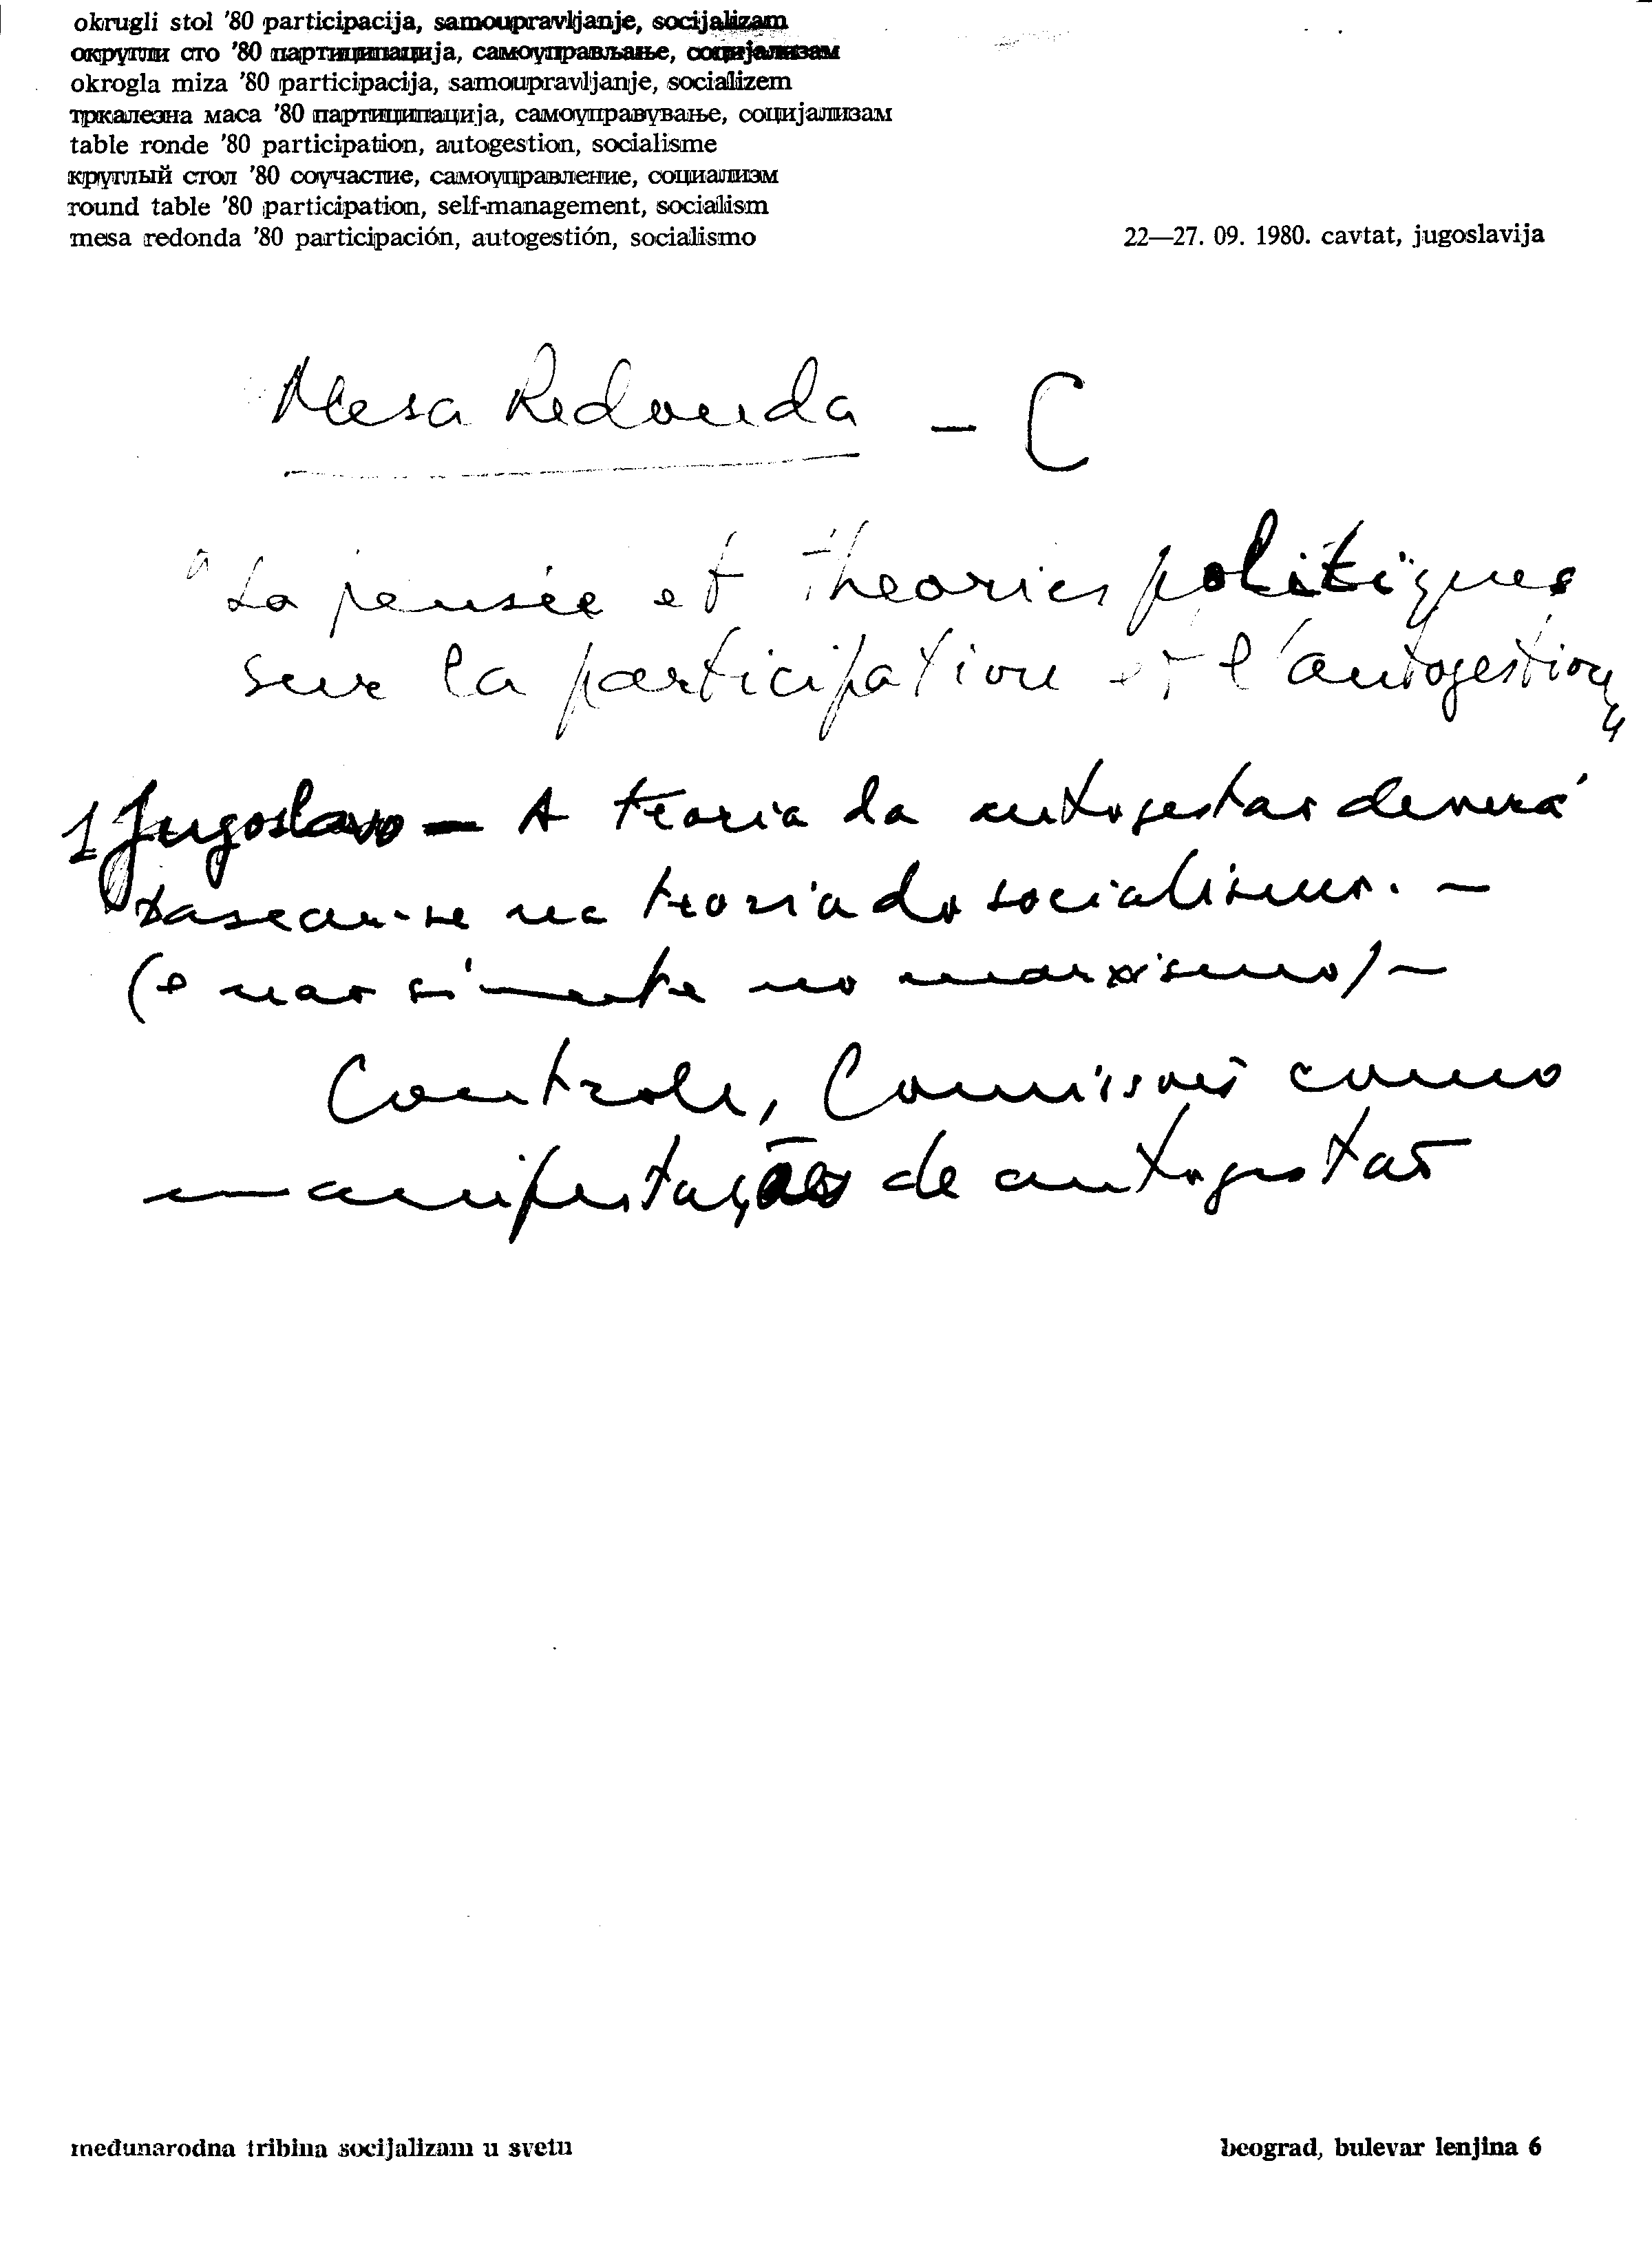 okrugli stol '80 participacija, samoupravljanje, socijalizam
округли сто '80 партиципација, самоуправљање, социјализам
okrogla miza '80 participacija, samoupravljanje, socializem
тркалезна маса '80 партиципација, самоуправување, социјализам
table ronde '80 participation, autogestion, socialisme
круглый стол '80 соучастие, самоуправление, социализм
round table '80 participation, self-management, socialism
mesa redonda '80 participación, autogestión, socialismo
22—27. 09. 1980. cavtat, jugoslavija
Mesa Redonda - C
"La pensée et theories politiques
sur la participation et l'autogestion"
1 Jugoslavo - A teoria da autogestao deverá
basear-se na teoria do socialismo. -
(e nao simente no marxismo) -
Controle, Comissões como
manifestações de autogestão
međunarodna tribina socijalizam u svetu
beograd, bulevar lenjina 6